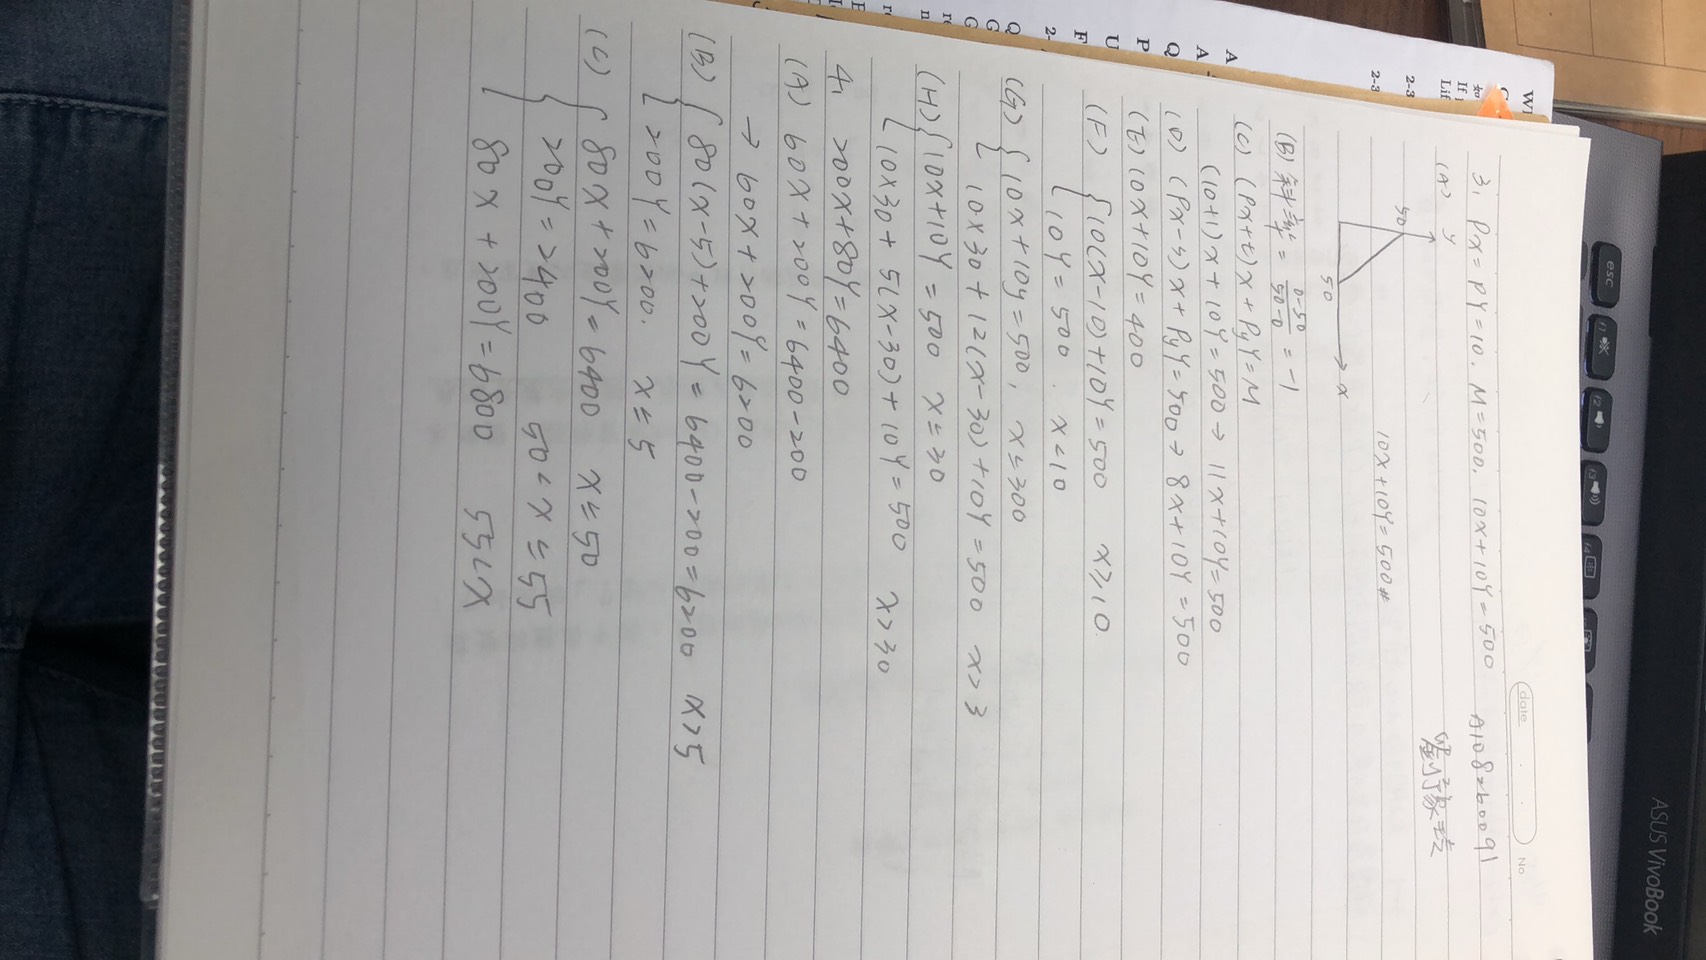 date
No
3. Px = Py = 10. M = 500. 10x + 10y = 500 A108260091
(A) y
50
50
x
10x + 10y = 500#
(B) 斜率 = 0-50 / 50-0 = -1
(C) (Px+t)x + Pyy = M
(10+1)x + 10y = 500 → 11x + 10y = 500
(D) (Px-s)x + Pyy = 500 → 8x + 10y = 500
(E) 10x + 10y = 400
(F) { 10(x-10) + 10y = 500 x ≥ 10.
10y = 500. x < 10
(G) { 10x + 10y = 500, x ≤ 300
10x30 + 12(x-30) + 10y = 500 x > 3
(H) { 10x + 10y = 500 x ≤ 30
10x30 + 5(x-30) + 10y = 500 x > 30
4, 200x + 80y = 6400
(A) 60x + 200y = 6400 - 200
→ 60x + 200y = 6200
(B) { 80(x-5) + 200y = 6400 - 200 = 6200 x > 5
200y = 6200. x ≤ 5
(C) { 80x + 200y = 6400 x ≤ 50
200y = 2400 50 < x ≤ 55
80x + 200y = 6800 55 < x
ASUS VivoBook
esc
f1
f2
f3
f4
2-3
2-3
If
Lif